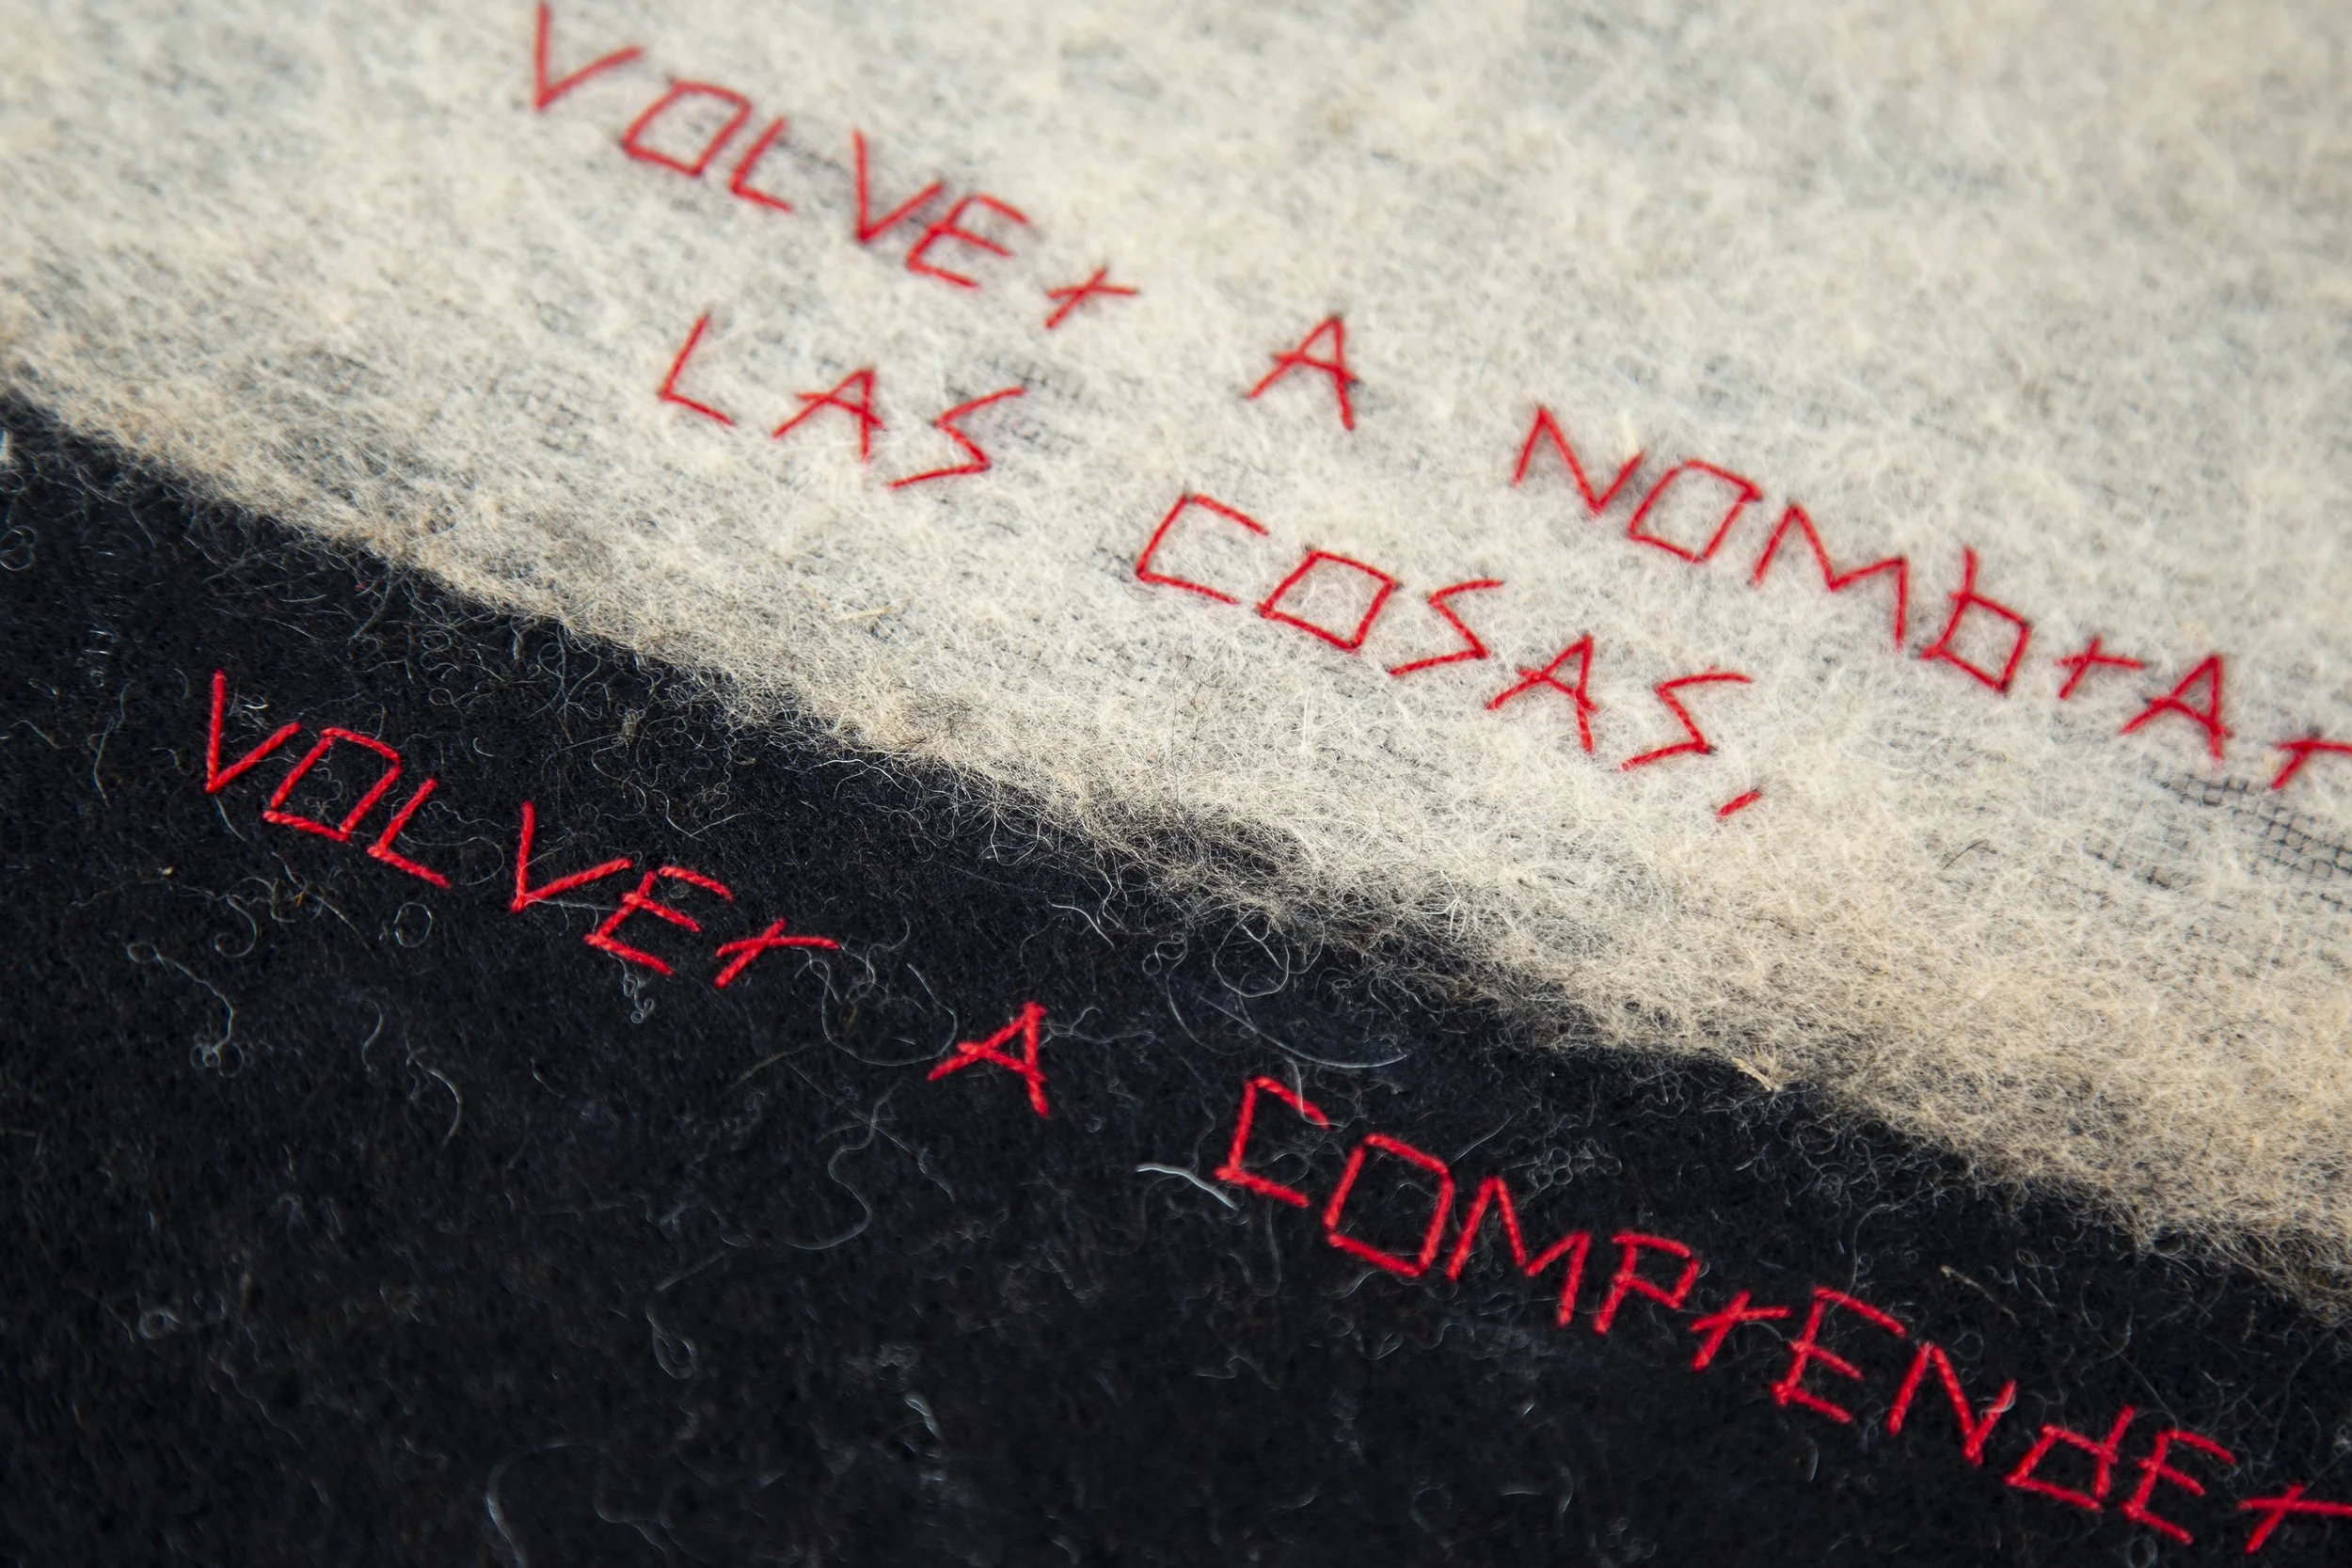 VOLVEr A NOMbrAr
LAS COSAS,
VOLVEr A COMPrENdEr